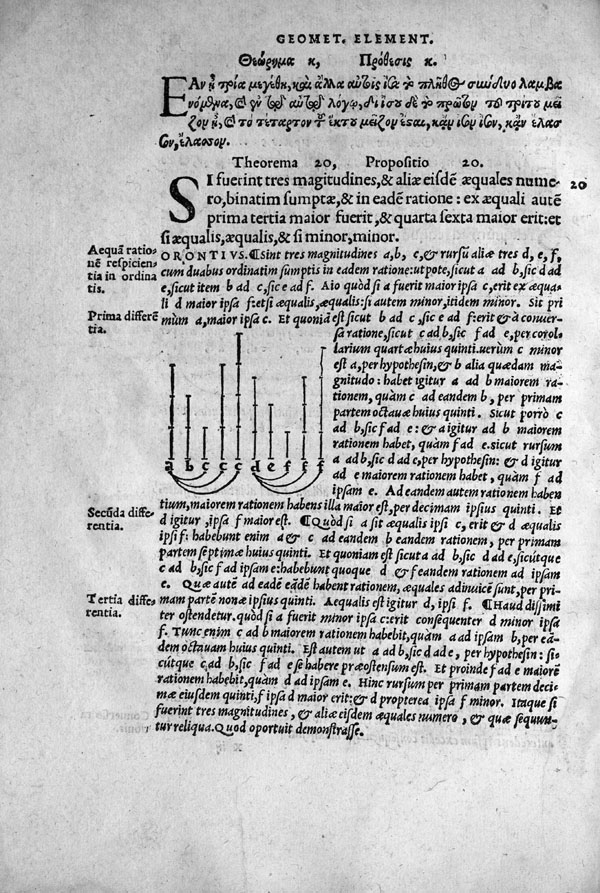 GEOMET. ELEMENT.
Θεώρημα κ, Πρόθεσις κ.
ΕΑν ᾖ τρία μεγέθη, καὶ ἄλλα αὐτοῖς ἴσα τὸ πλῆθος σύνδυο λαμβα
νόμενα, καὶ ἐν τῷ αὐτῷ λόγῳ, δι ἴσου δὲ τὸ πρῶτον τοῦ τρίτου μεῖ
ζον ᾖ, καὶ τὸ τέταρτον τοῦ ἕκτου μεῖζον ἔσται, κἂν ἴσον ἴσον, κἂν ἔλασ
σον, ἔλασσον.
Theorema 20, Propositio 20.
SI fuerint tres magitudines,& aliæ eisdē æquales nume- 20
ro,binatim sumptæ,& in eadē ratione : ex æquali autē
prima tertia maior fuerit,& quarta sexta maior erit:et
si æqualis,æqualis,& si minor,minor.
Aequā ratio
nē respicien
tia in ordina
tis.
ORONTIVS.¶Sint tres magnitudines a,b, c,& rursū aliæ tres d, e, f,
cum duabus ordinatim sumptis in eadem ratione:utpote,sicut a ad b,sic d ad
e,sicut item b ad c,sic e ad f. Aio quòd si a fuerit maior ipsa c,erit ex æqua-
li d maior ipsa f:et si æqualis,æqualis:si autem minor,itidem minor. Sit pri
Prima differē
tia.
mùm a,maior ipsa c. Et quoniā est sicut b ad c,sic e ad f:erit & à conuer-
sa ratione,sicut c ad b,sic f ad e,per corol-
larium quartæ huius quinti.uerùm c minor
est a,per hypothesin,& b alia quædam ma-
gnitudo: habet igitur a ad b maiorem ra-
tionem, quàm c ad eandem b, per primam
partem octauæ huius quinti. Sicut porrò c
ad b,sic f ad e: & a igitur ad b maiorem
rationem habet, quàm f ad e.sicut rursum
a ad b,sic d ad e,per hypothesin: & d igitur
ad e maiorem rationem habet, quàm f ad
ipsam e. Ad eandem autem rationem haben
a b c c c d e f f f
tium,maiorem rationem habens illa maior est,per decimam ipsius quinti. Et
Secūda diffe-
rentia.
d igitur ,ipsa f maior est. ¶Quòd si a sit æqualis ipsi c,erit & d æqualis
ipsi f: habebunt enim a & c ad eandem b eandem rationem, per primam
partem septimæ huius quinti. Et quoniam est sicut a ad b,sic d ad e,sicútque
c ad b,sic f ad ipsam e:habebunt quoque d & f eandem rationem ad ipsam
e. Quæ autē ad eadē eādē habent rationem, æquales adinuicē sunt,per pri-
Tertia diffe-
rentia.
mam partē nonæ ipsius quinti. Aequalis est igitur d, ipsi f. ¶Haud dissimi
ter ostendetur.quòd si a fuerit minor ipsa c:erit consequenter d minor ipsa
f. Tunc enim c ad b maiorem rationem habebit,quàm a ad ipsam b,per ean-
dem octauam huius quinti. Est autem ut a ad b,sic d ad e, per hypothesin : si-
cútque c ad b,sic f ad e se habere præostensum est. Et proinde f ad e maiorē
rationem habebit,quàm d ad ipsam e. Hinc rursum per primam partem deci
mæ eiusdem quinti,f ipsa d maior erit:& d propterea ipsa f minor. Itaque si
fuerint tres magnitudines , & aliæ eisdem æquales numero , & quæ sequun-
tur reliqua.Quod oportuit demonstrasse.